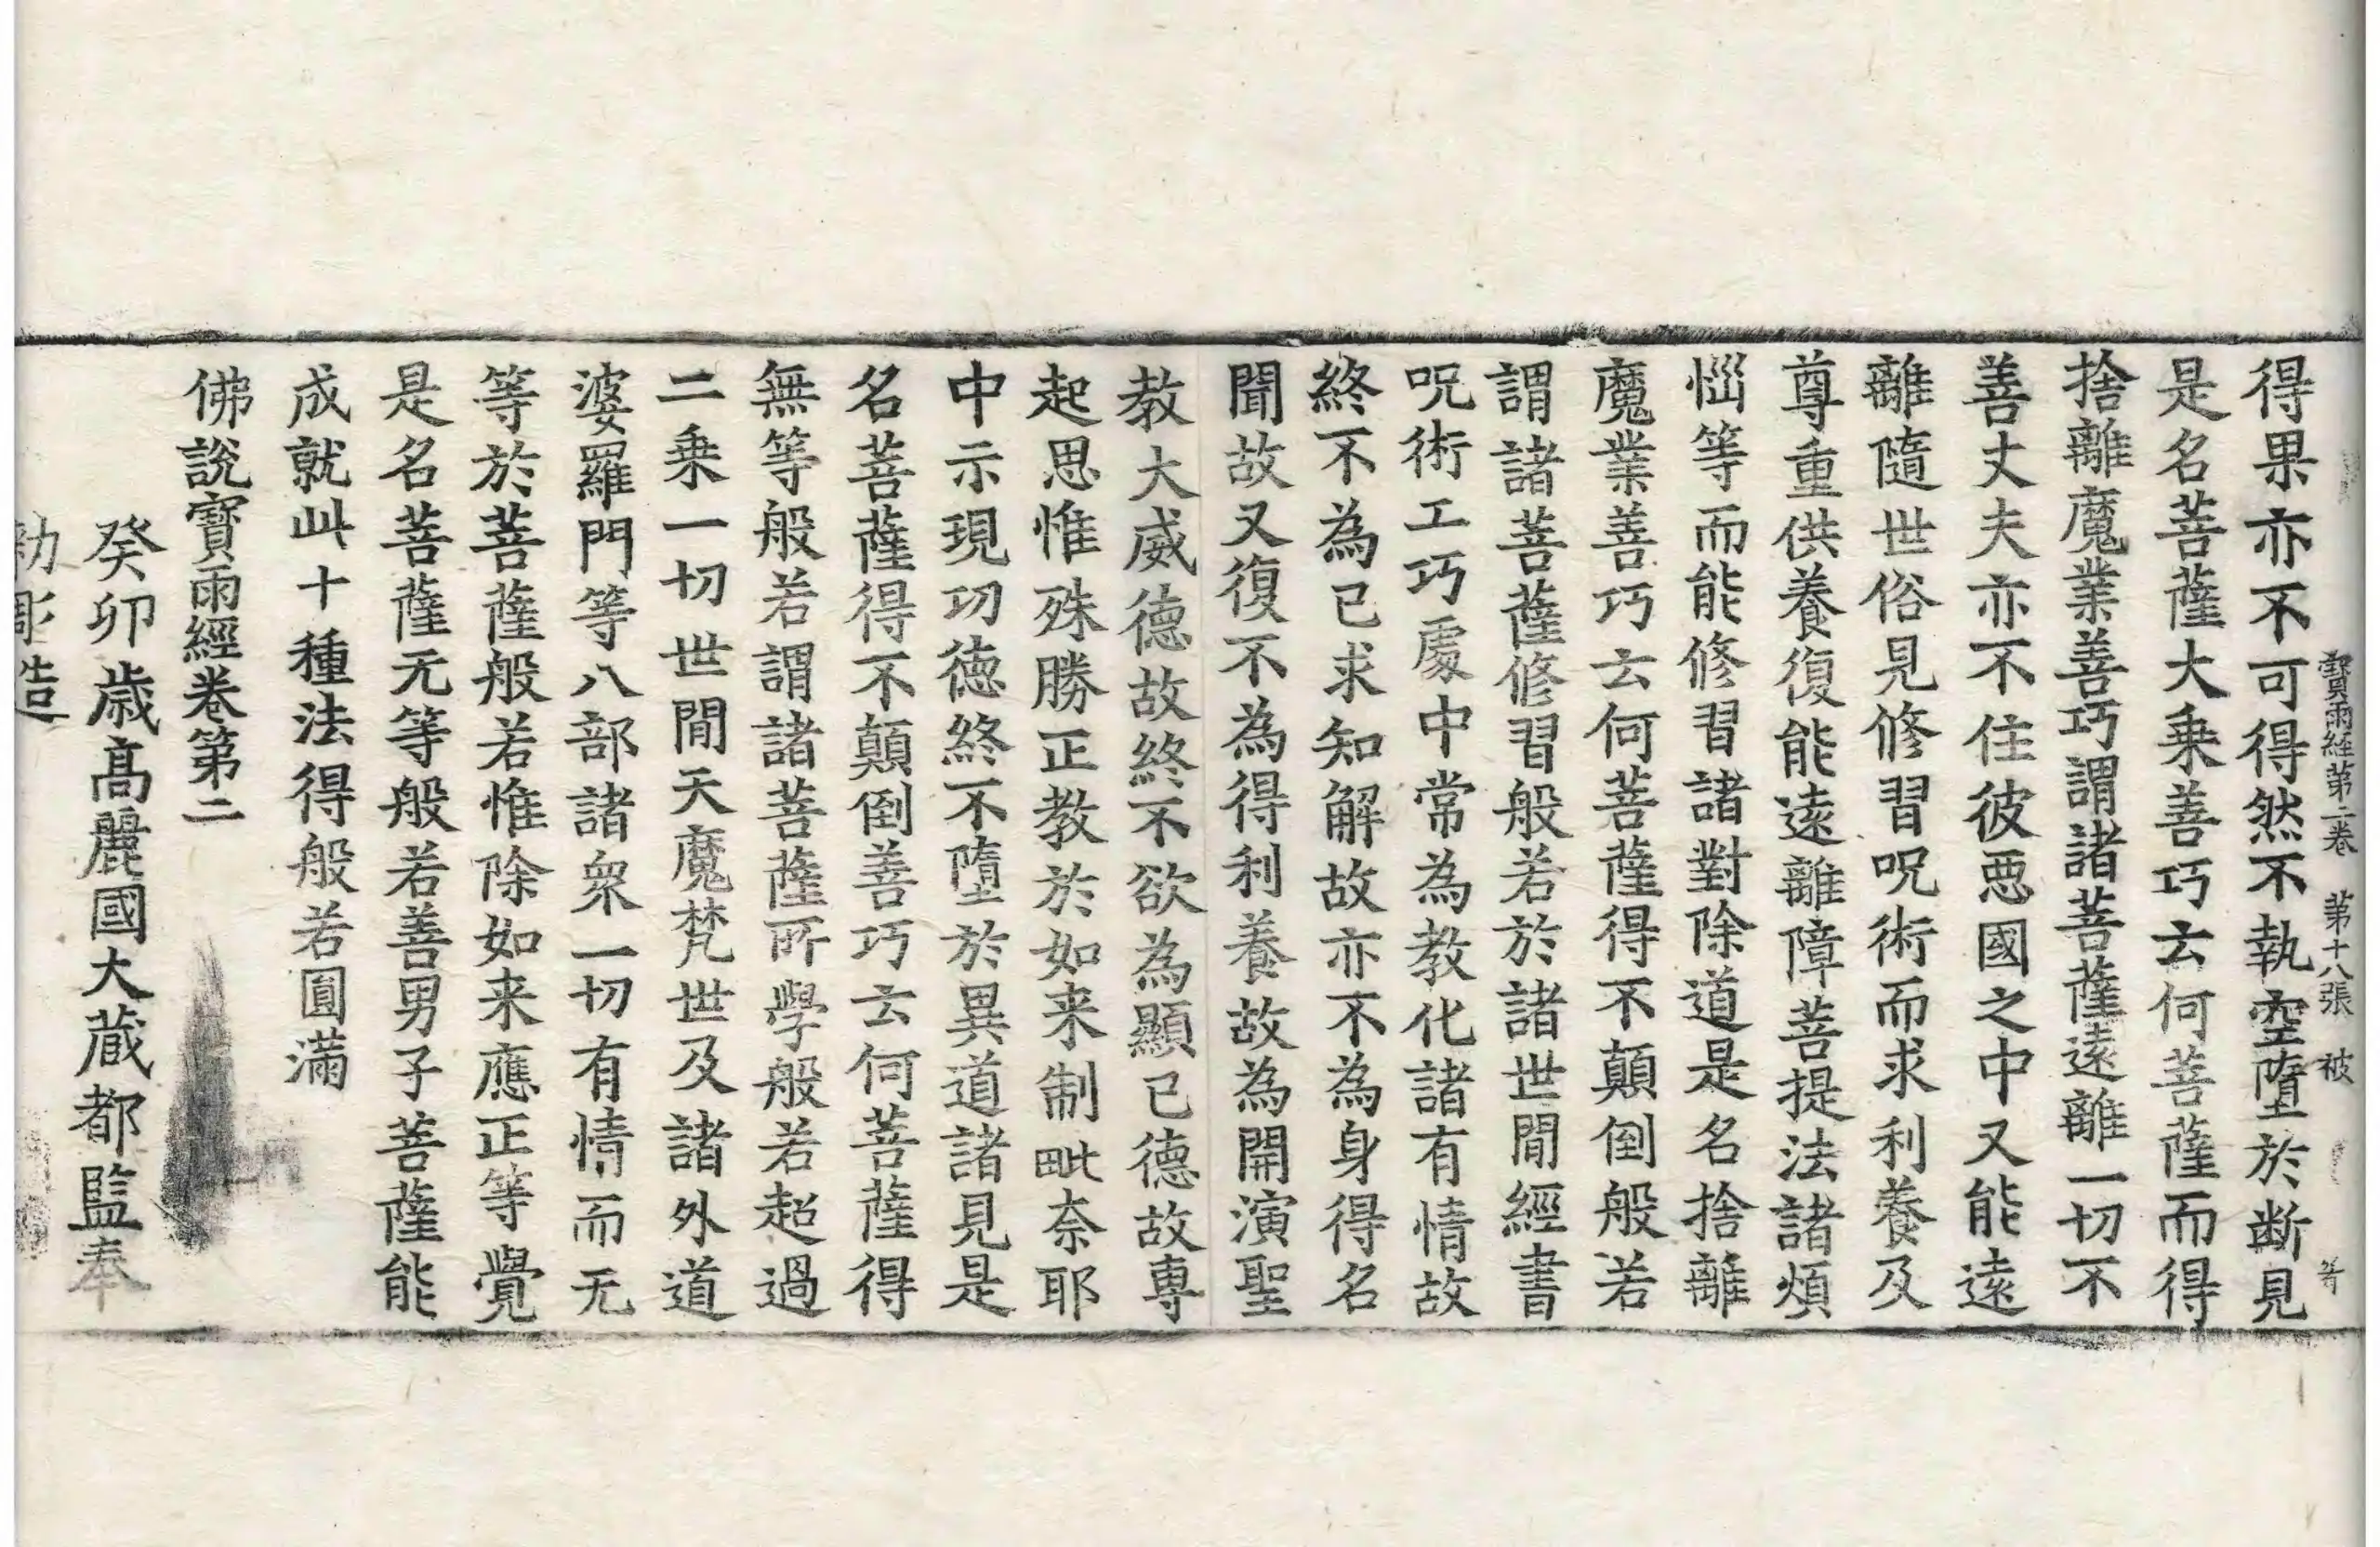 寶雨経第二卷 第十八張 被
得果亦不可得然不執空墮於断見
是名菩薩大乗善巧云何菩薩而得
捨離魔業善巧謂諸菩薩遠離一切不
善丈夫亦不住彼悪國之中又能遠
離隨世俗見修習呪術而求利養及
尊重供養復能遠離障菩提法諸煩
惱等而能修習諸對除道是名捨離
魔業善巧云何菩薩得不顛倒般若
謂諸菩薩修習般若於諸世閒經書
呪術工巧處中常為教化諸有情故
終不為已求知解故亦不為身得名
聞故又復不為得利養故為開演聖
教大威德故終不欲為顯已德故専
起思惟殊勝正教於如来制毗奈耶
中示現功徳終不墮於異道諸見是
名菩薩得不顛倒善巧云何菩薩得
無等般若謂諸菩薩所學般若超過
二乗一切世閒天魔梵世及諸外道
婆羅門等八部諸衆一切有情而无
等於菩薩般若惟除如来應正等覺
是名菩薩无等般若善男子菩薩能
成就此十種法得般若圓滿
佛說寶雨經卷第二
癸卯歳髙麗國大蔵都監奉
勑彫造